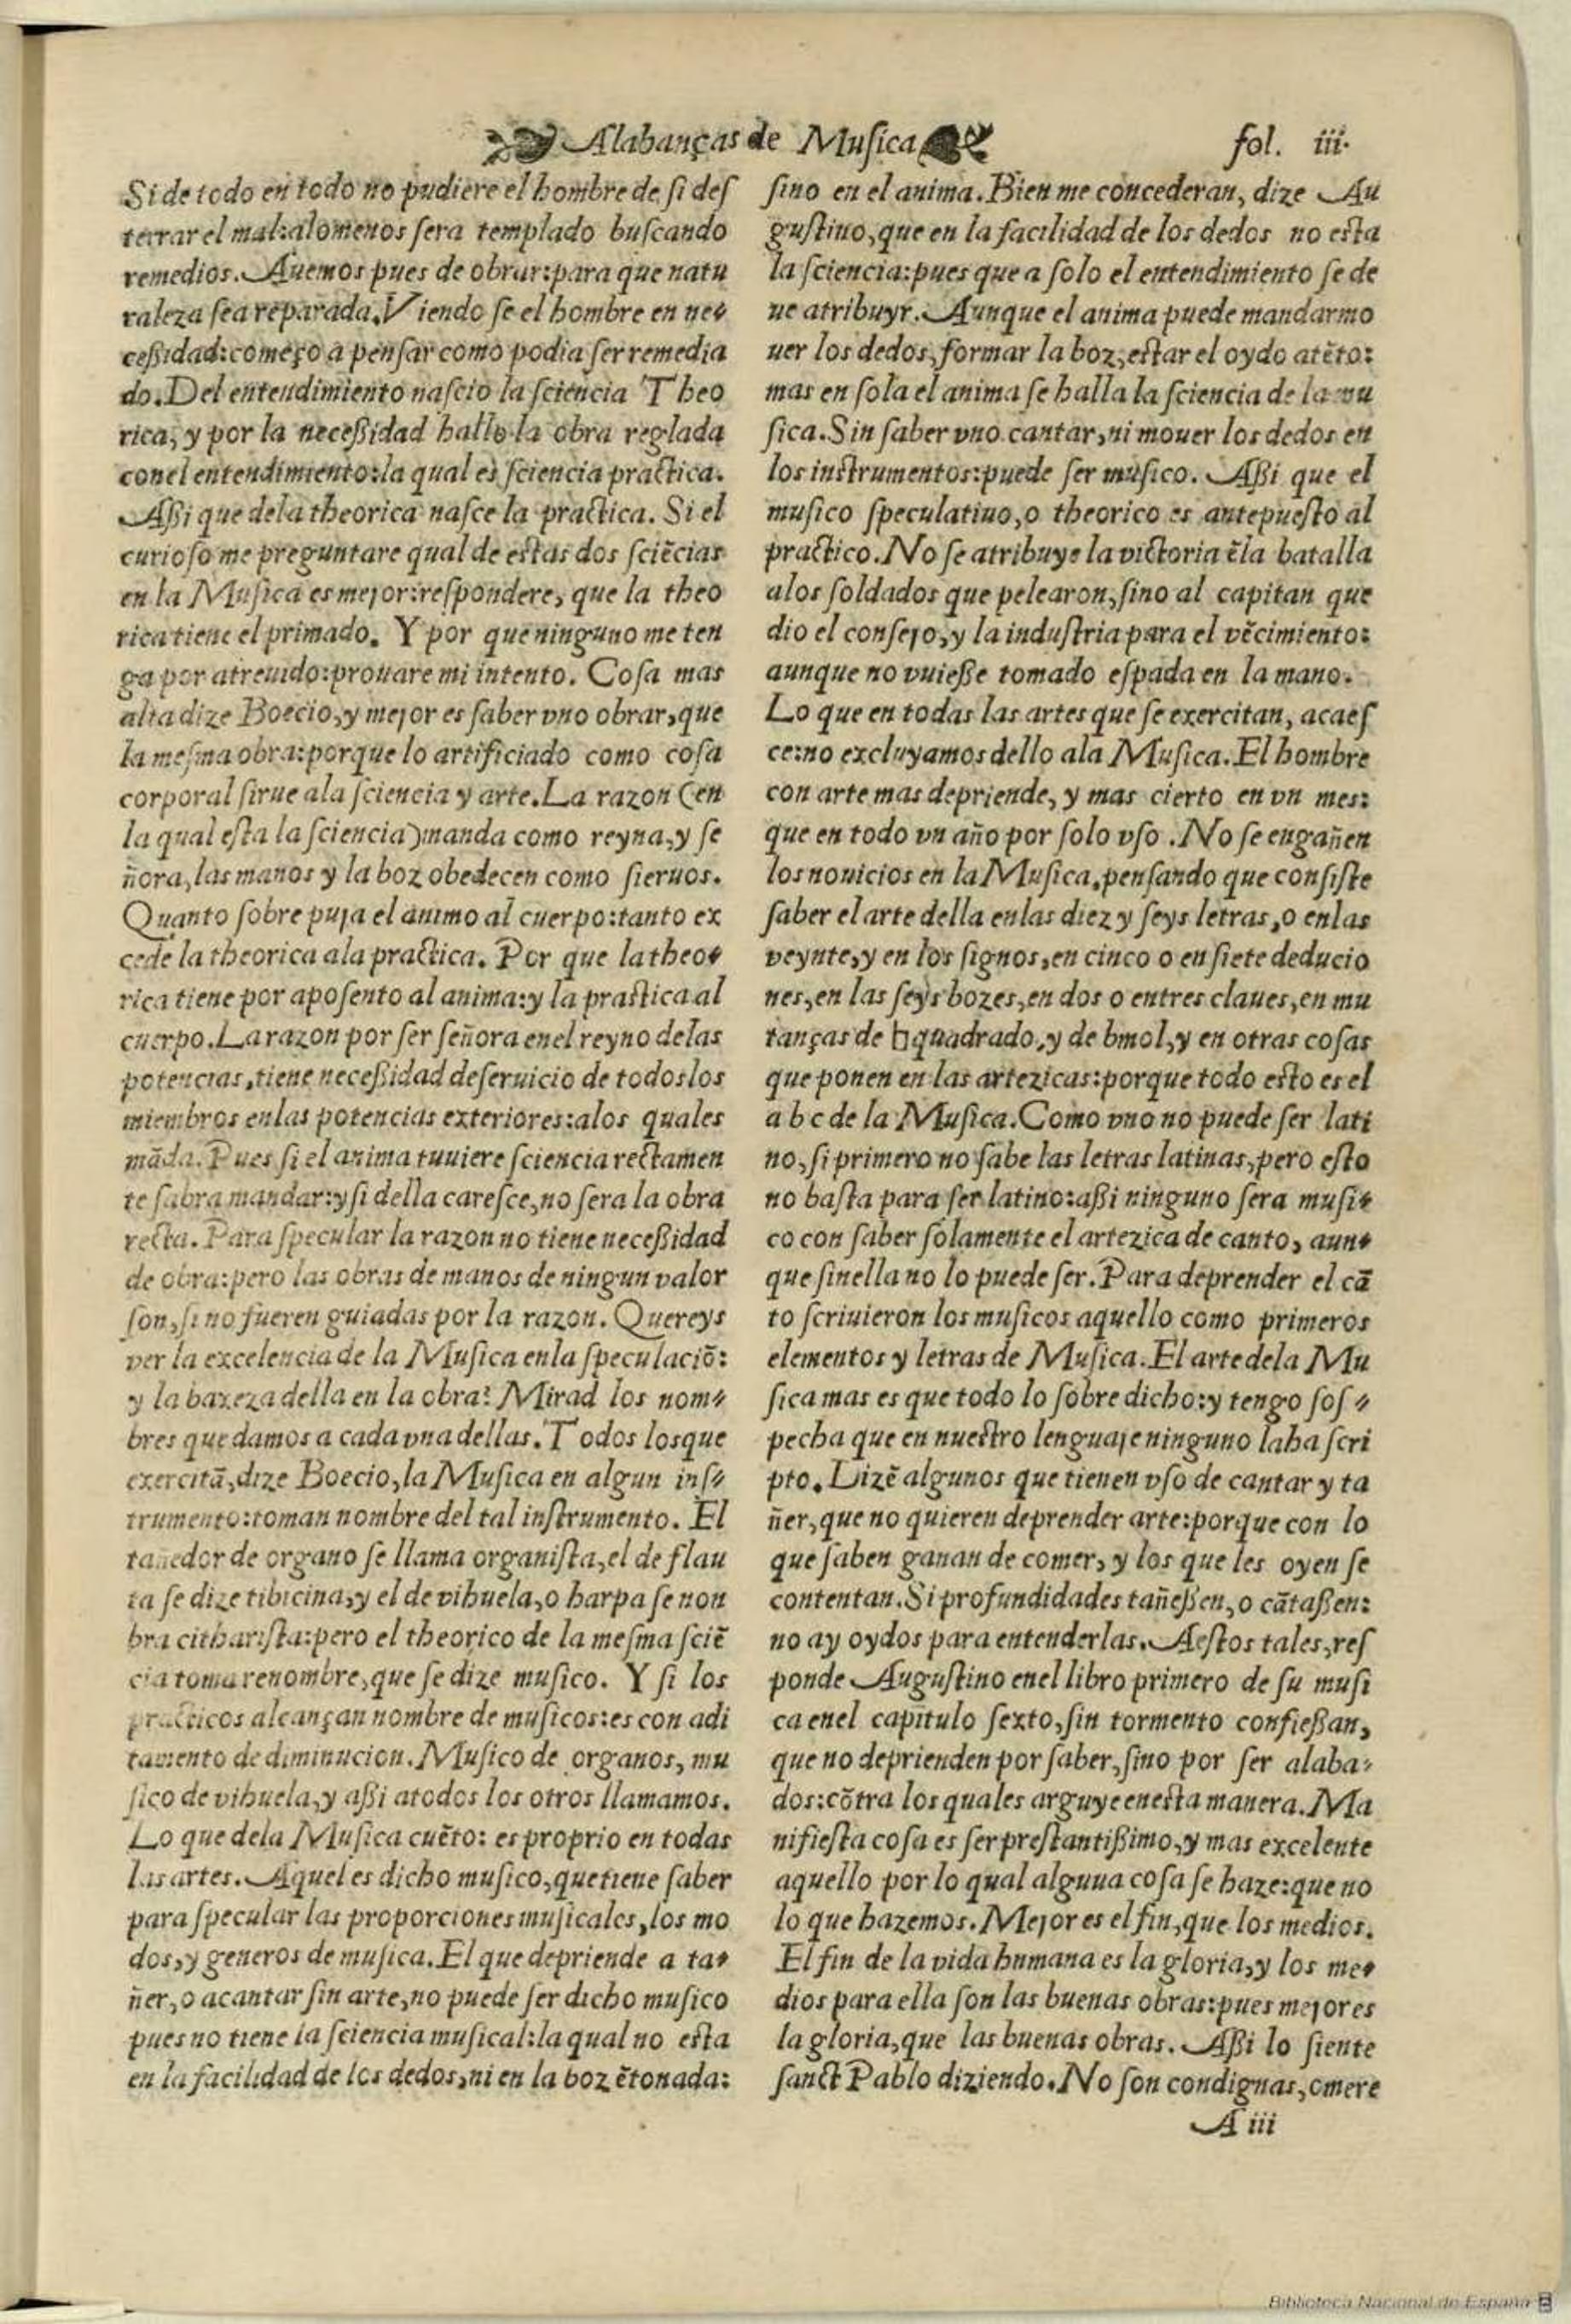 Alabanças de Musica fol. iii.
Si de todo en todo no pudiere el hombre de si deſ
terrar el mal: alomenos ſera templado buſcando
remedios. Auemos pues de obrar: para que natu
raleza ſea reparada. Viendo ſe el hombre en ne-
ceßidad: começo a penſar como podia ſer remedia
do. Del entendimiento naſcio la ſciencia Theo
rica, y por la neceßidad hallo la obra reglada
conel entendimiento: la qual es ſciencia practica.
Aßi que dela theorica naſce la practica. Si el
curioſo me preguntare qual de eſtas dos ſciēcias
en la Muſica es mejor: reſpondere, que la theo
rica tiene el primado. Y por que ninguno me ten
ga por atreuido: prouare mi intento. Coſa mas
alta dize Boecio, y mejor es ſaber vno obrar, que
la meſma obra: porque lo artificiado como coſa
corporal ſirue ala ſciencia y arte. La razon (en
la qual eſta la ſciencia) manda como reyna, y ſe
ñora, las manos y la boz obedecen como ſieruos.
Quanto ſobre puja el animo al cuerpo: tanto ex
cede la theorica ala practica. Por que la theo-
rica tiene por apoſento al anima: y la practica al
cuerpo. La razon por ſer ſeñora enel reyno delas
potencias, tiene neceßidad de ſeruicio de todos los
miembros enlas potencias exteriores: alos quales
māda. Pues ſi el anima tuuiere ſciencia rectamen
te ſabra mandar: y ſi della careſce, no ſera la obra
recta. Para ſpecular la razon no tiene neceßidad
de obra: pero las obras de manos de ningun valor
ſon, ſi no fueren guiadas por la razon. Quereys
ver la excelencia de la Muſica enla ſpeculaciō:
y la baxeza della en la obra? Mirad los nom-
bres que damos a cada vna dellas. Todos losque
exercitā, dize Boecio, la Muſica en algun inſ-
trumento: toman nombre del tal inſtrumento. El
tañedor de organo ſe llama organiſta, el de flau
ta ſe dize tibicina, y el de vihuela, o harpa ſe non
bra cithariſta: pero el theorico de la meſma ſciē
cia toma renombre, que ſe dize muſico. Y ſi los
practicos alcançan nombre de muſicos: es con adi
tamento de diminucion. Muſico de organos, mu
ſico de vihuela, y aßi atodos los otros llamamos.
Lo que dela Muſica cuēto: es proprio en todas
las artes. Aquel es dicho muſico, que tiene ſaber
para ſpecular las proporciones muſicales, los mo
dos, y generos de muſica. El que depriende a ta-
ñer, o acantar ſin arte, no puede ſer dicho muſico
pues no tiene la ſciencia muſical: la qual no eſta
en la facilidad de los dedos, ni en la boz ētonada:
ſino en el anima. Bien me concederan, dize Au
guſtino, que en la facilidad de los dedos no eſta
la ſciencia: pues que a ſolo el entendimiento ſe de
ue atribuyr. Aunque el anima puede mandar mo
uer los dedos, formar la boz, eſtar el oydo atēto:
mas en ſola el anima ſe halla la ſciencia de la mu
ſica. Sin ſaber vno cantar, ni mouer los dedos en
los inſtrumentos: puede ſer muſico. Aßi que el
muſico ſpeculatiuo, o theorico es antepueſto al
practico. No ſe atribuye la victoria ēla batalla
alos ſoldados que pelearon, ſino al capitan que
dio el conſejo, y la induſtria para el vēcimiento:
aunque no vuieße tomado eſpada en la mano.
Lo que en todas las artes que ſe exercitan, acaeſ
ce: no excluyamos dello ala Muſica. El hombre
con arte mas depriende, y mas cierto en vn mes:
que en todo vn año por ſolo vſo. No ſe engañen
los nouicios en la Muſica, penſando que conſiſte
ſaber el arte della enlas diez y ſeys letras, o enlas
veynte, y en los ſignos, en cinco o en ſiete deducio
nes, en las ſeys bozes, en dos o entres claues, en mu
tanças de ♮ quadrado, y de bmol, y en otras coſas
que ponen en las artezicas: porque todo eſto es el
a b c de la Muſica. Como vno no puede ſer lati
no, ſi primero no ſabe las letras latinas, pero eſto
no baſta para ſer latino: aßi ninguno ſera muſi-
co con ſaber ſolamente el artezica de canto, aun-
que ſinella no lo puede ſer. Para deprender el cā
to ſcriuieron los muſicos aquello como primeros
elementos y letras de Muſica. El arte dela Mu
ſica mas es que todo lo ſobre dicho: y tengo ſoſ-
pecha que en nueſtro lenguaje ninguno la ha ſcri
pto. Dizē algunos que tienen vſo de cantar y ta
ñer, que no quieren deprender arte: porque con lo
que ſaben ganan de comer, y los que les oyen ſe
contentan. Si profundidades tañeßen, o cātaßen:
no ay oydos para entenderlas. Aeſtos tales, reſ
ponde Auguſtino enel libro primero de ſu muſi
ca enel capitulo ſexto, ſin tormento confießan,
que no deprienden por ſaber, ſino por ſer alaba-
dos: cōtra los quales arguye eneſta manera. Ma
nifieſta coſa es ſer preſtantißimo, y mas excelente
aquello por lo qual alguua coſa ſe haze: que no
lo que hazemos. Mejor es el fin, que los medios.
El fin de la vida humana es la gloria, y los me-
dios para ella ſon las buenas obras: pues mejor es
la gloria, que las buenas obras. Aßi lo ſiente
ſanct Pablo diziendo. No ſon condignas, o mere
A iii
Biblioteca Nacional de España